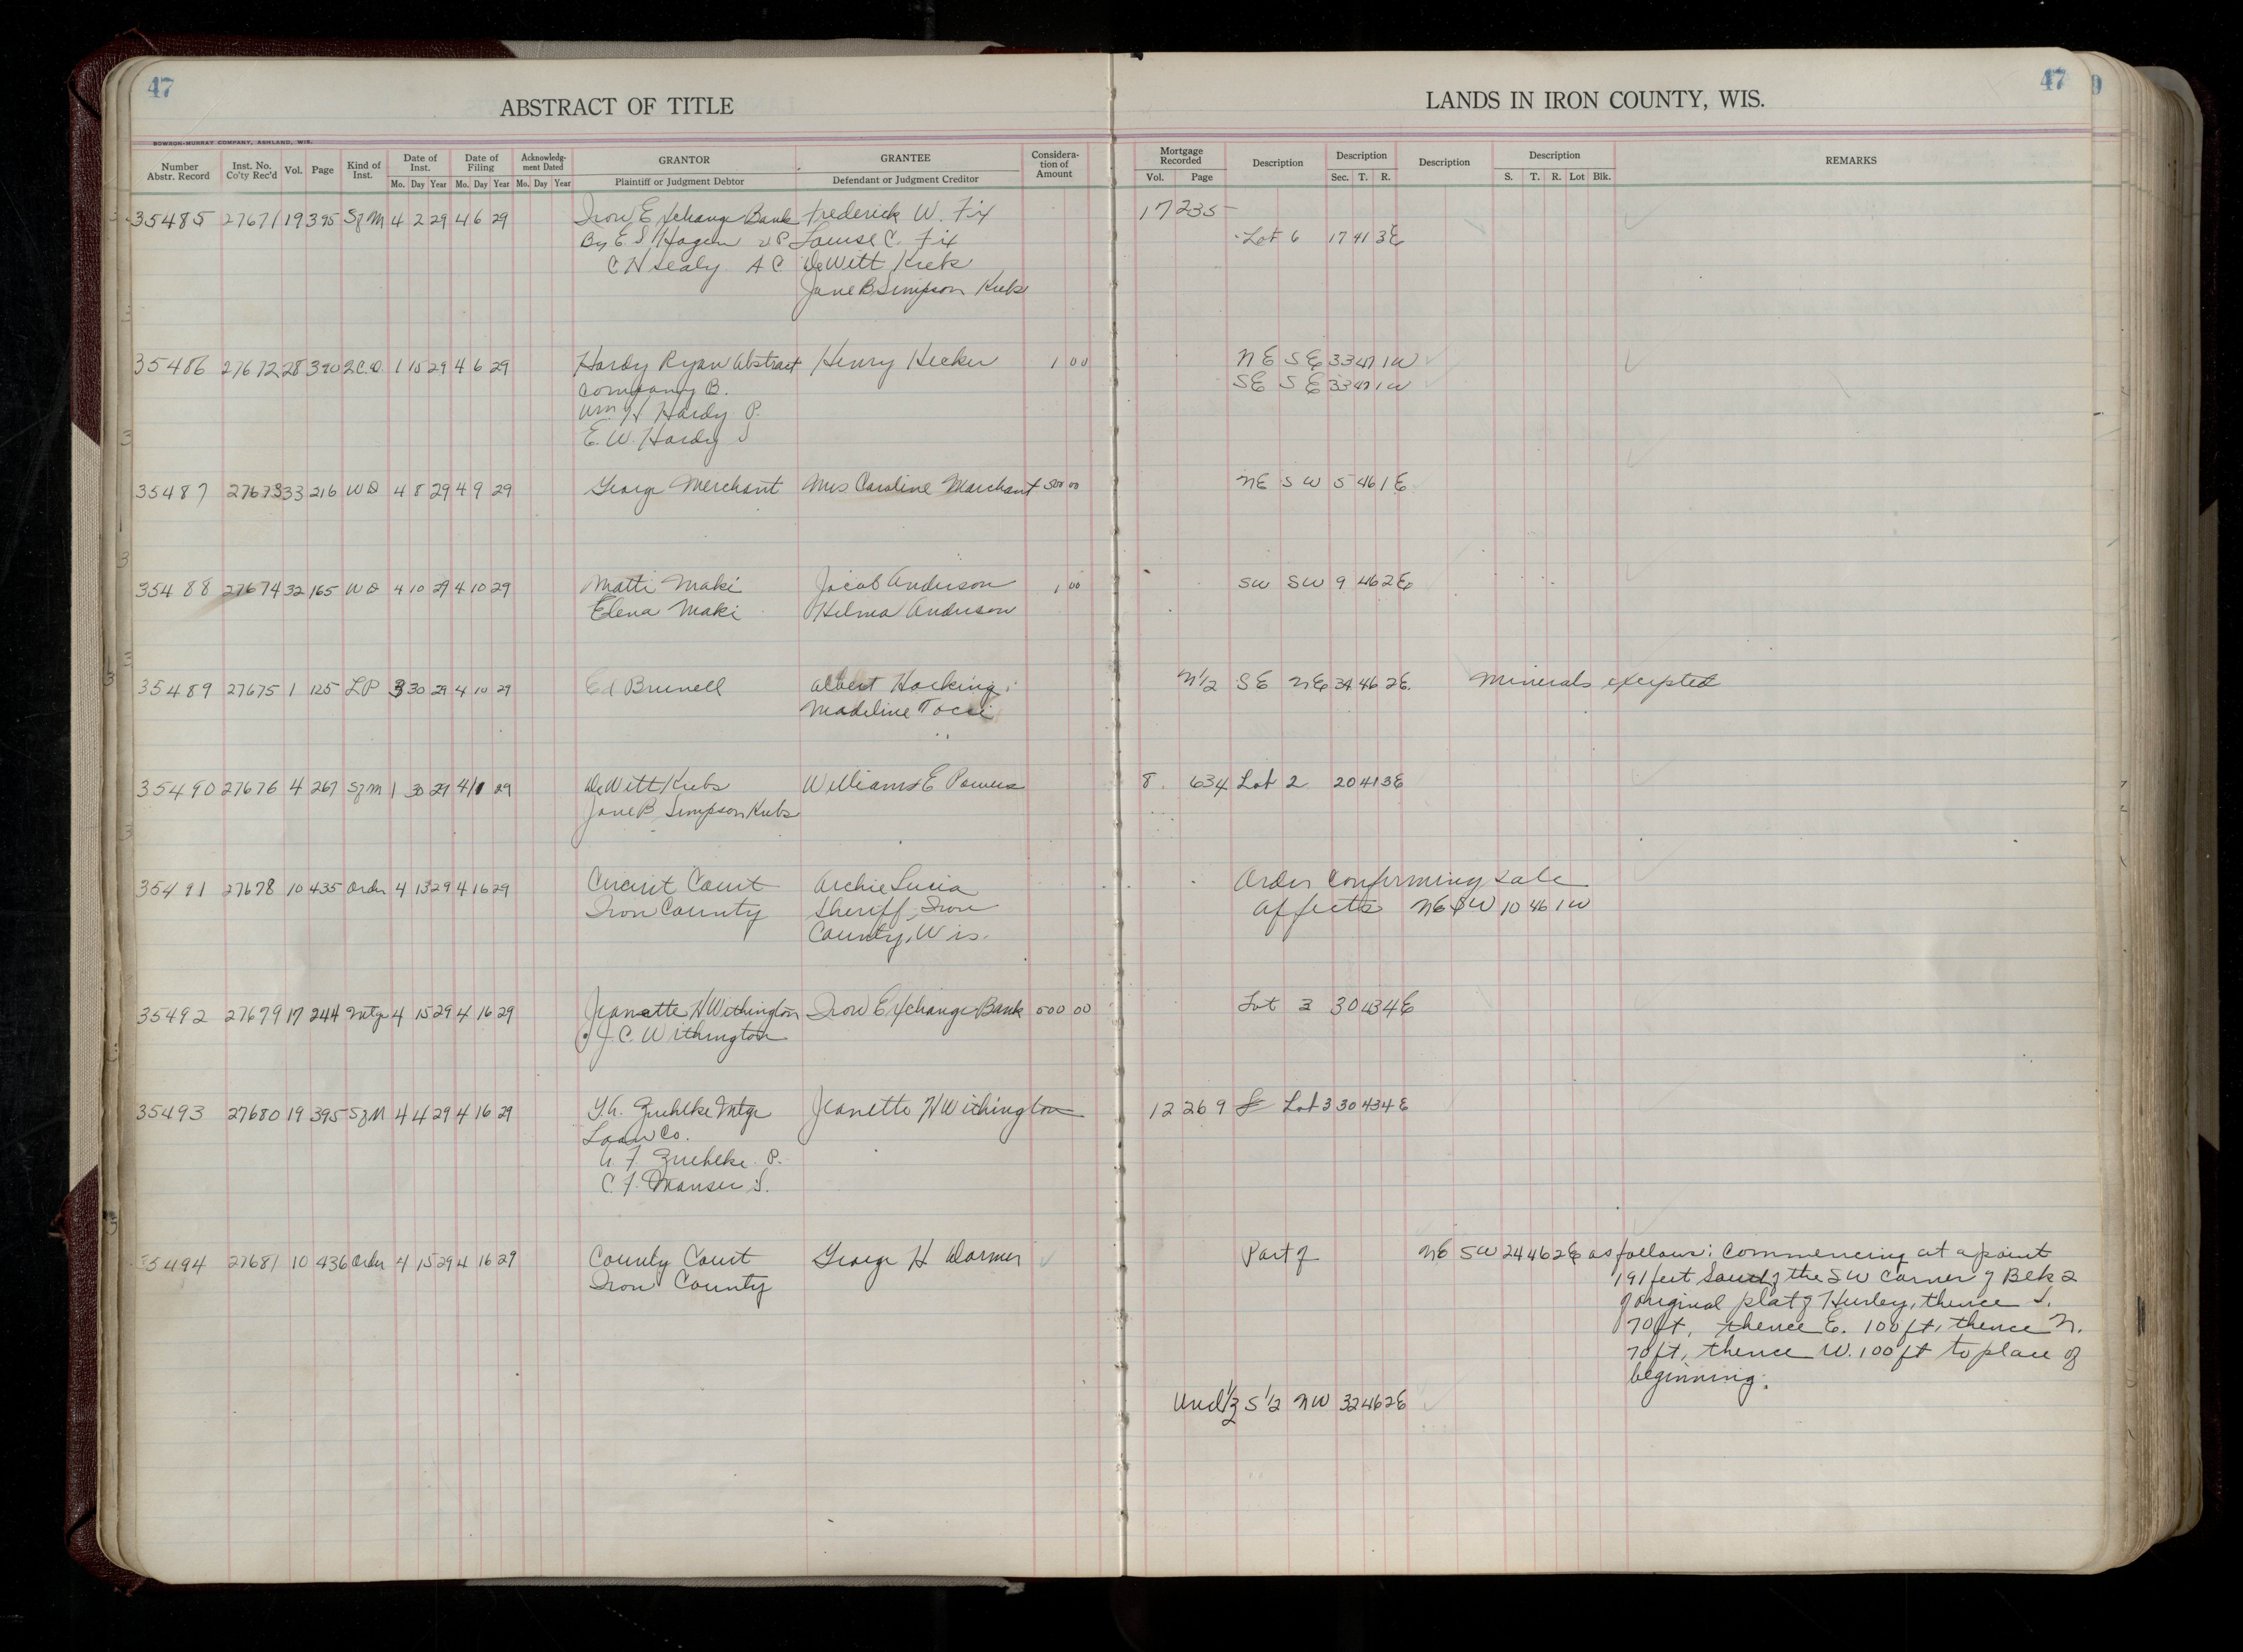 47
47
ABSTRACT OF TITLE
LANDS IN IRON COUNTY, WIS.
BOWRON-MURRAY COMPANY, ASHLAND, WIS.
Number Abstr. Record Inst. No. Co'ty Rec'd Vol. Page Kind of Inst. Date of Inst. Mo. Day Year Date of Filing Mo. Day Year Acknowledg-ment Dated Mo. Day Year GRANTOR Plaintiff or Judgment Debtor GRANTEE Defendant or Judgment Creditor Considera-tion of Amount
Mortgage Recorded Vol. Page Description Description Sec. T. R. Description Description S. T. R. Lot Blk. REMARKS
35485 27671 19 395 Sz M 4 2 29 4 6 29 Iron Exchange Bank Frederick W. Fix 17 235
By E. S. Hagen VP Louise C. Fix Lot 6 17 41 3E
C N Sealy A C DeWitt Kreb
Jane B Simpson Kreb
35486 27672 28 390 2.C.D. 1 15 29 4 6 29 Hardy Ryan Abstract Henry Hecker 1 00 NE SE 33 47 1W
Company B. SE SE 33 47 1W
Wm H Hardy P.
E. W. Hardy S
35487 27673 33 216 WD 4 8 29 4 9 29 George Merchant Mrs Caroline Marchant 500 00 NE SW 5 46 1E
35488 27674 32 165 WD 4 10 29 4 10 29 Matti Maki Jacob Anderson 1 00 SW SW 9 46 2E
Elena Maki Hilma Anderson
35489 27675 1 125 LP 3 30 29 4 10 29 Ed Brunell Albert Hocking N1/2 SE NE 34 46 2E. Minerals excepted
Madeline Tocci
35490 27676 4 267 Sz M 1 30 29 4 11 29 DeWitt Krebs William E Powers 8 634 Lot 2 20 41 3E
Jane B Simpson Krebs
35491 27678 10 435 Order 4 13 29 4 16 29 Circuit Court Archie Lucia Order confirming sale
Iron County Sheriff, Iron affects NE SW 10 46 1W
County, Wis.
35492 27679 17 244 Mtge 4 15 29 4 16 29 Jeanette H Withington Iron Exchange Bank 500 00 Lot 3 30 43 4E
J. C. Withington
35493 27680 19 395 Sz M 4 4 29 4 16 29 Zuehlke Mtge Jeanette H Withington 12 269 Lot 3 30 43 4E
Loan Co.
Zuehlke P.
C. F. Manser S.
35494 27681 10 436 Order 4 15 29 4 16 29 County Court George H Dormer Part of NE SW 24 46 2E as follows: Commencing at a point
Iron County 191 feet South of the SW corner of Blk 2
of original plat of Hurley, thence S.
70 ft, thence E. 100 ft, thence N.
70 ft, thence W. 100 ft to place of
beginning.
Und 1/2 S 1/2 NW 32 46 2E